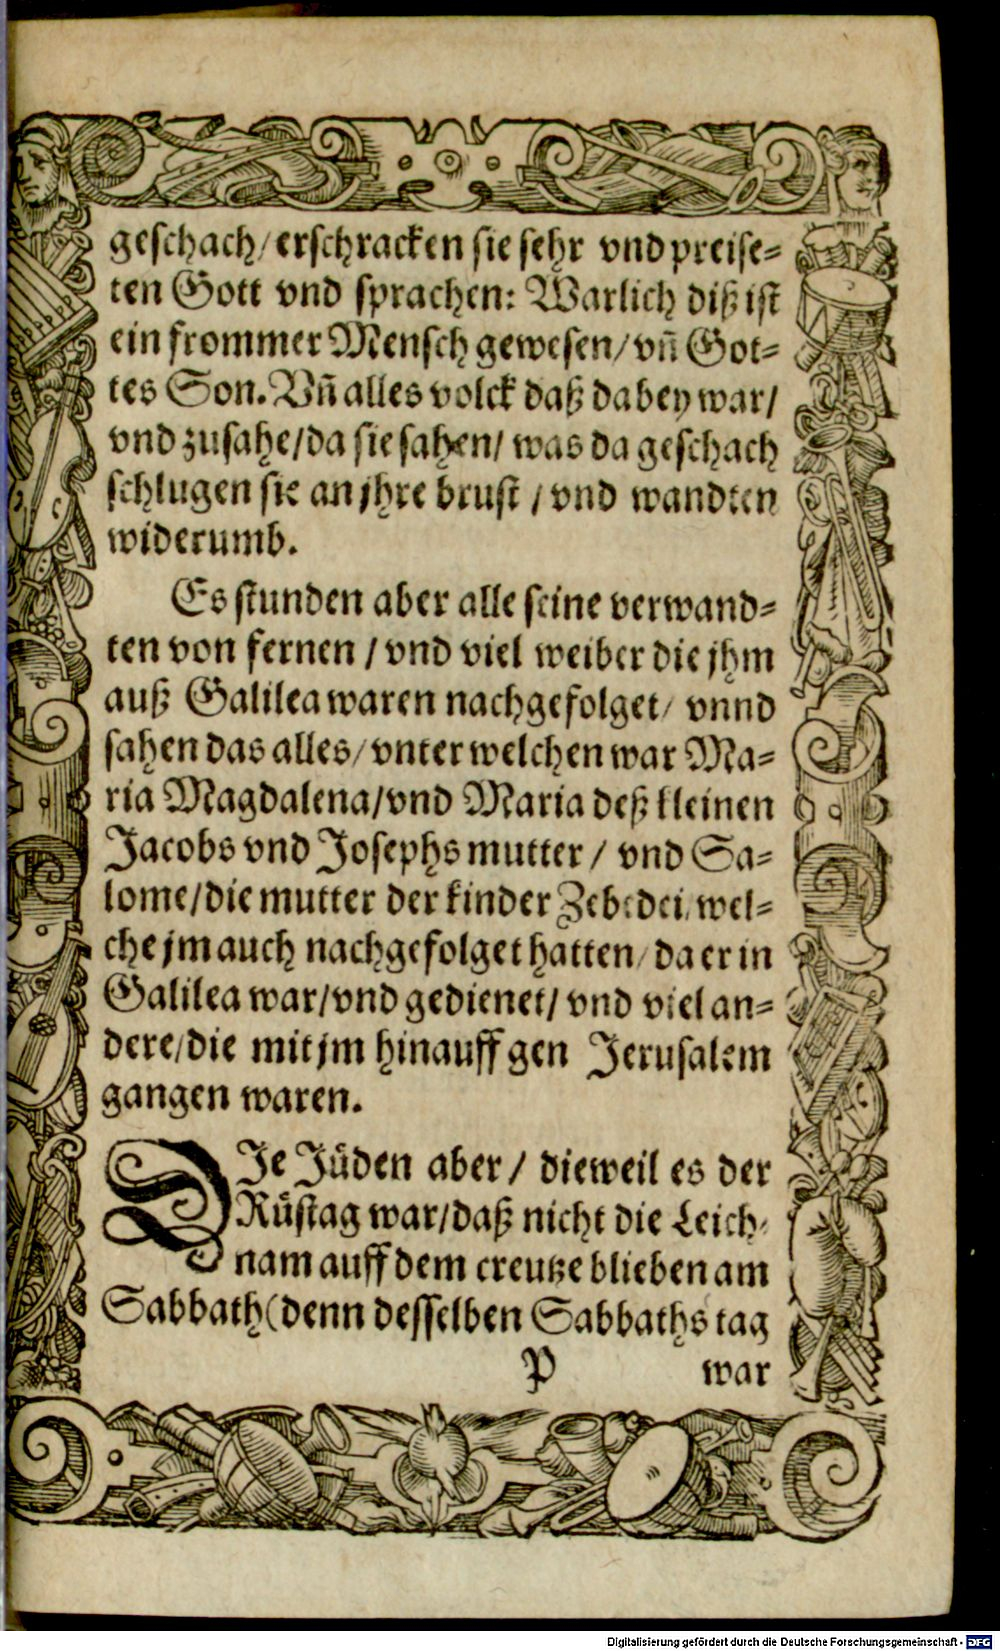 geschach/ erschracken sie sehr vnd preise=
ten Gott vnd sprachen: Warlich diß ist
ein frommer Mensch gewesen/ vñ Got=
tes Son. Vñ alles volck daß dabey war/
vnd zusahe/ da sie sahen/ was da geschach
schlugen sie an jhre brust / vnd wandten
widerumb.
Es stunden aber alle seine verwand=
ten von fernen / vnd viel weiber die jhm
auß Galilea waren nachgefolget/ vnnd
sahen das alles/ vnter welchen war Ma=
ria Magdalena/ vnd Maria deß kleinen
Jacobs vnd Josephs mutter / vnd Sa=
lome/ die mutter der kinder Zebedei/ wel=
che jm auch nachgefolget hatten/ da er in
Galilea war/ vnd gedienet/ vnd viel an=
dere/ die mit jm hinauff gen Jerusalem
gangen waren.
DIe Jüden aber / dieweil es der
Rüstag war/ daß nicht die Leich=
nam auff dem creutze blieben am
Sabbath (denn desselben Sabbaths tag
P war
Digitalisierung gefördert durch die Deutsche Forschungsgemeinschaft - DFG